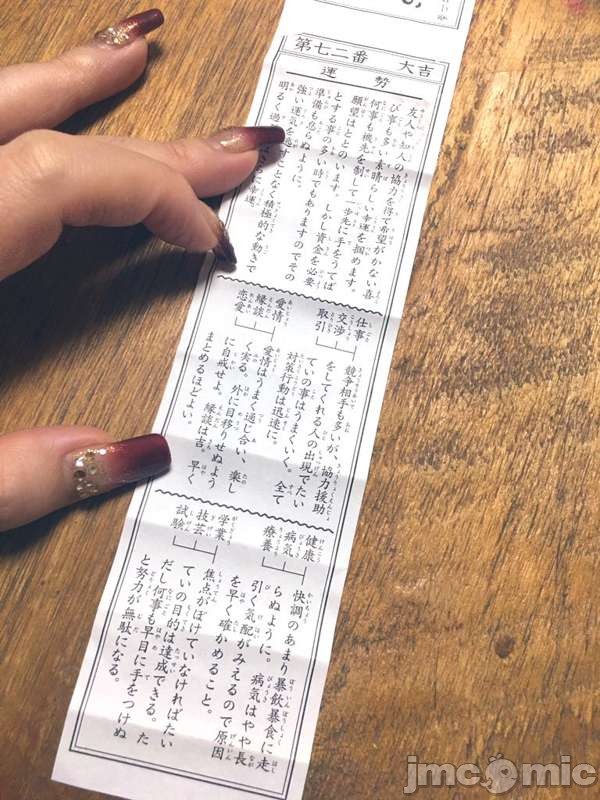 第七二番 大吉
運勢
友人や知人の協力を得て希望がかない喜
び事も多い素晴らしい幸運を掴めます。
何事も機先を制して一歩先に手をうてば
願望はととのいます。しかし資金を必要
とする事の多い時でもありますのでその
準備も怠らぬように。
強い運気を逃すことなく積極的な動きで
明るく過
幸運。
仕事
交渉
取引
競争相手も多いが、協力援助
をしてくれる人の出現でたい
ていの事はうまくいく。全て
対策行動は迅速に。
愛情
縁談
恋愛
愛情はうまく通じ合い、楽し
く実る。外に目移りせぬよう
に自戒せよ。縁談は吉。早く
まとめるほどよい。
健康
病気
療養
快調のあまり暴飲暴食に走
らぬように。病気はやや長
引く気配がみえるので原因
を早く確かめること。
学業
技芸
試験
焦点がぼけていなければたい
ていの目的は達成できる。た
だし何事も早目に手をつけぬ
と努力が無駄になる。
jmcomic